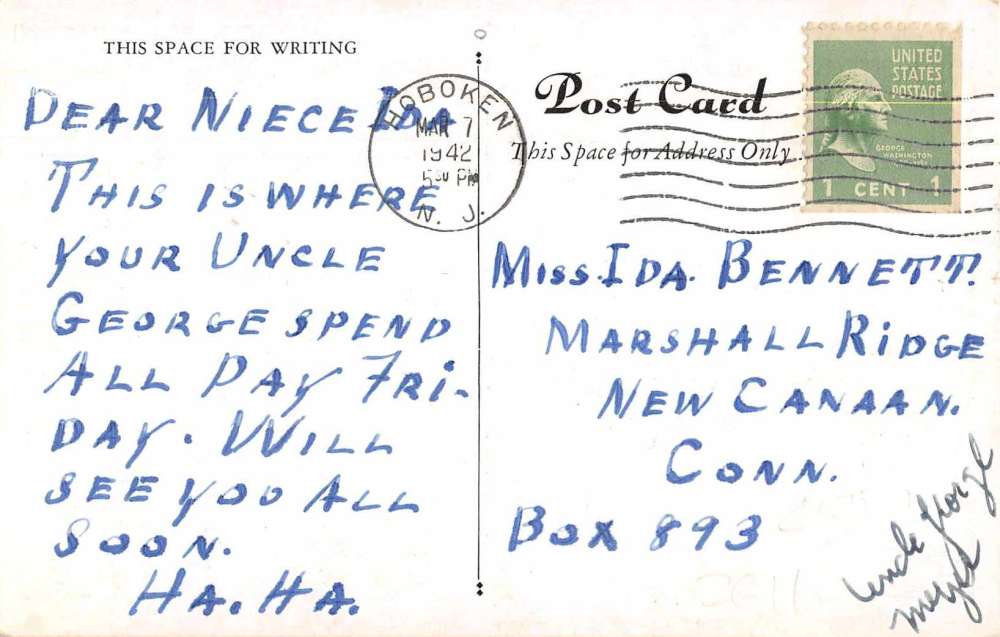 THIS SPACE FOR WRITING
DEAR NIECE IDA
THIS IS WHERE
YOUR UNCLE
GEORGE SPEND
ALL DAY FRI-
DAY. WILL
SEE YOU ALL
SOON.
HA. HA.
HOBOKEN
MAR 7
1942
5 PM
N. J.
Post Card
This Space for Address Only
UNITED
STATES
POSTAGE
GEORGE
WASHINGTON
1 CENT 1
MISS. IDA. BENNETT.
MARSHALL RIDGE
NEW CANAAN.
CONN.
BOX 893
uncle george